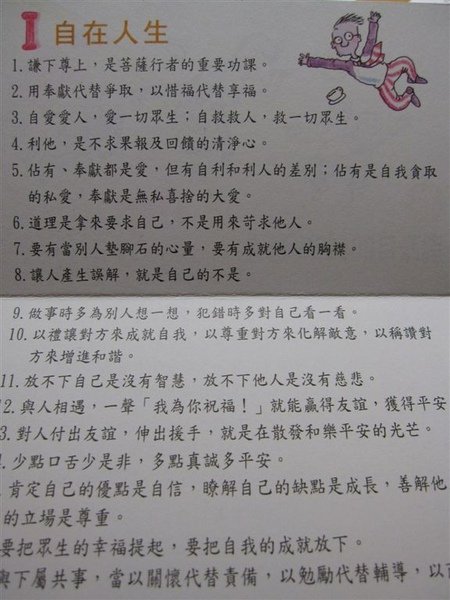 I 自在人生
1. 謙下尊上，是菩薩行者的重要功課。
2. 用奉獻代替爭取，以惜福代替享福。
3. 自愛愛人，愛一切眾生；自救救人，救一切眾生。
4. 利他，是不求果報及回饋的清淨心。
5. 佔有、奉獻都是愛，但有自利和利人的差別；佔有是自我貪取
的私愛，奉獻是無私喜捨的大愛。
6. 道理是拿來要求自己，不是用來苛求他人。
7. 要有當別人墊腳石的心量，要有成就他人的胸襟。
8. 讓人產生誤解，就是自己的不是。
9. 做事時多為別人想一想，犯錯時多對自己看一看。
10. 以禮讓對方來成就自我，以尊重對方來化解敵意，以稱讚對
方來增進和諧。
11. 放不下自己是沒有智慧，放不下他人是沒有慈悲。
2. 與人相遇，一聲「我為你祝福！」就能贏得友誼，獲得平安
3. 對人付出友誼，伸出援手，就是在散發和樂平安的光芒。
. 少點口舌少是非，多點真誠多平安。
肯定自己的優點是自信，瞭解自己的缺點是成長，善解他
的立場是尊重。
要把眾生的幸福提起，要把自我的成就放下。
與下屬共事，當以關懷代替責備，以勉勵代替輔導，以